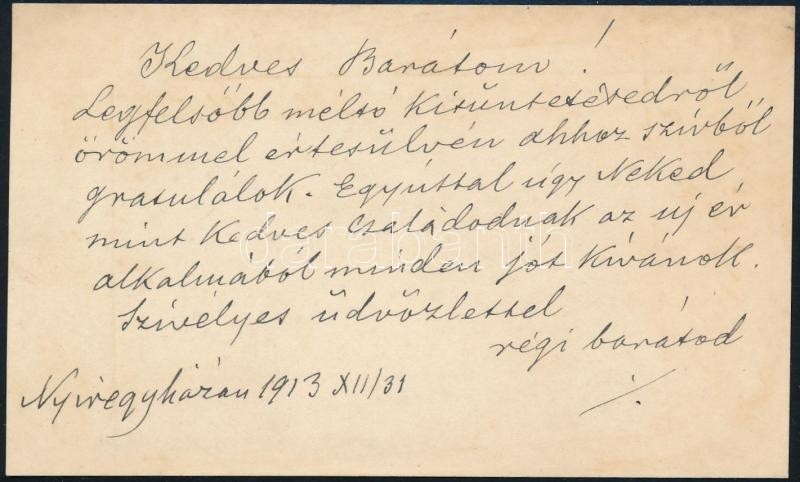 Kedves Barátom!
Legfelsőbb méltó kitüntetésedről
örömmel értesülvén ahhoz szívből
gratulálok. Egyúttal úgy Neked
mint Kedves Családodnak az új év
alkalmából minden jót kívánok.
Szívélyes üdvözlettel
régi barátod
Nyiregyházan 1913 XII/31
darabanth